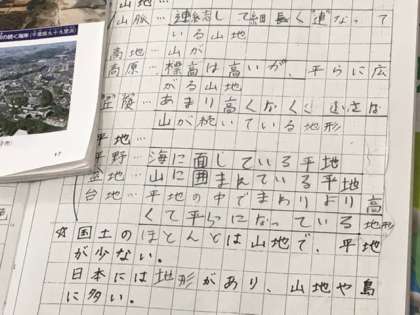 山地…
山脈…連続して細長く連なって
いる山地
高地…山が
高原…標高は高いが、平らに広
がる山地
丘陵…あまり高くなく、小さな
山が続いている地形
平地…
平野…海に面している平地
盆地…山に囲まれている平地
台地…平地の中でまわりより高
くて平らになっている地形
☆国土のほとんどは山地で、平地
が少ない。
日本には地形があり、山地や島
に多い。